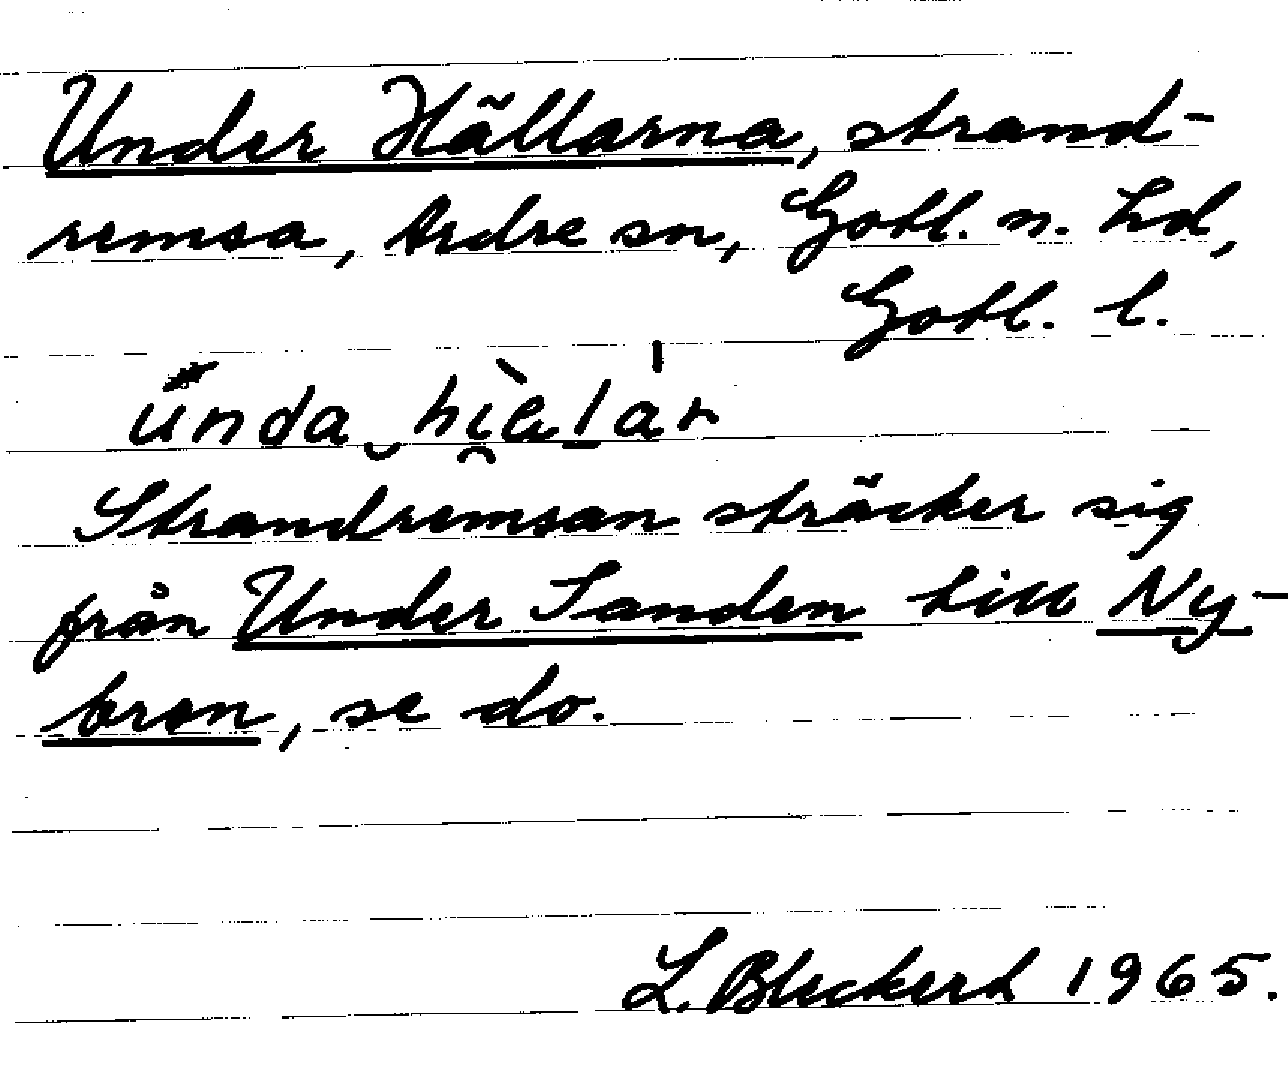 Under Hällarna, strand-
remsa, Ardre sn, Gotl. n. hd,
Gotl. l.
Strandremsan sträcker sig
från Under Sanden till Ny-
bron, se do.
L. Bleckert 1965.